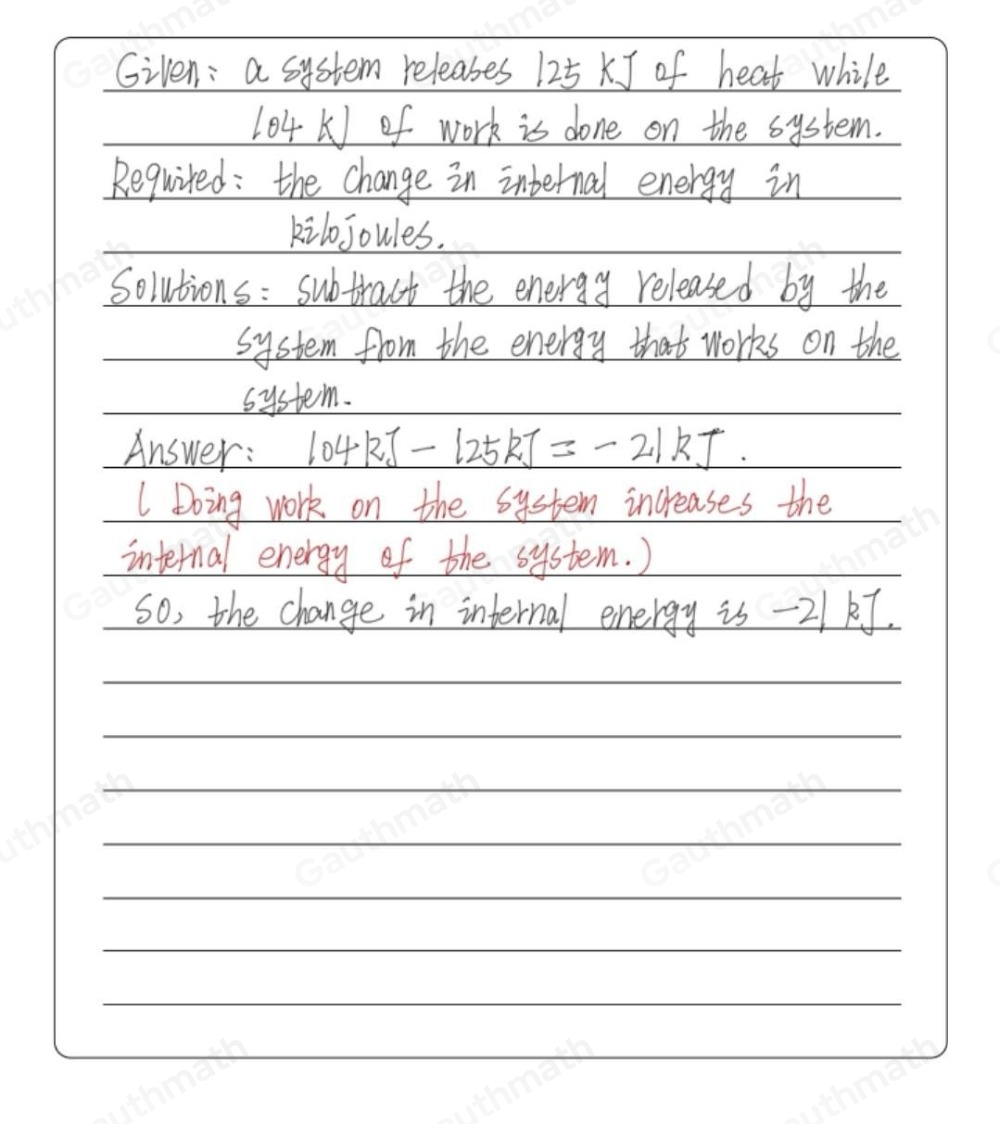 Given: a system releases 125 KJ of heat while
104 KJ of work is done on the system.
Required: the change in internal energy in
kilojoules.
Solutions: subtract the energy released by the
system from the energy that works on the
system.
Answer: 104 kJ - 125 kJ = - 21 kJ.
( Doing work on the system increases the
internal energy of the system.)
So, the change in internal energy is -21 kJ.
Gauthmath